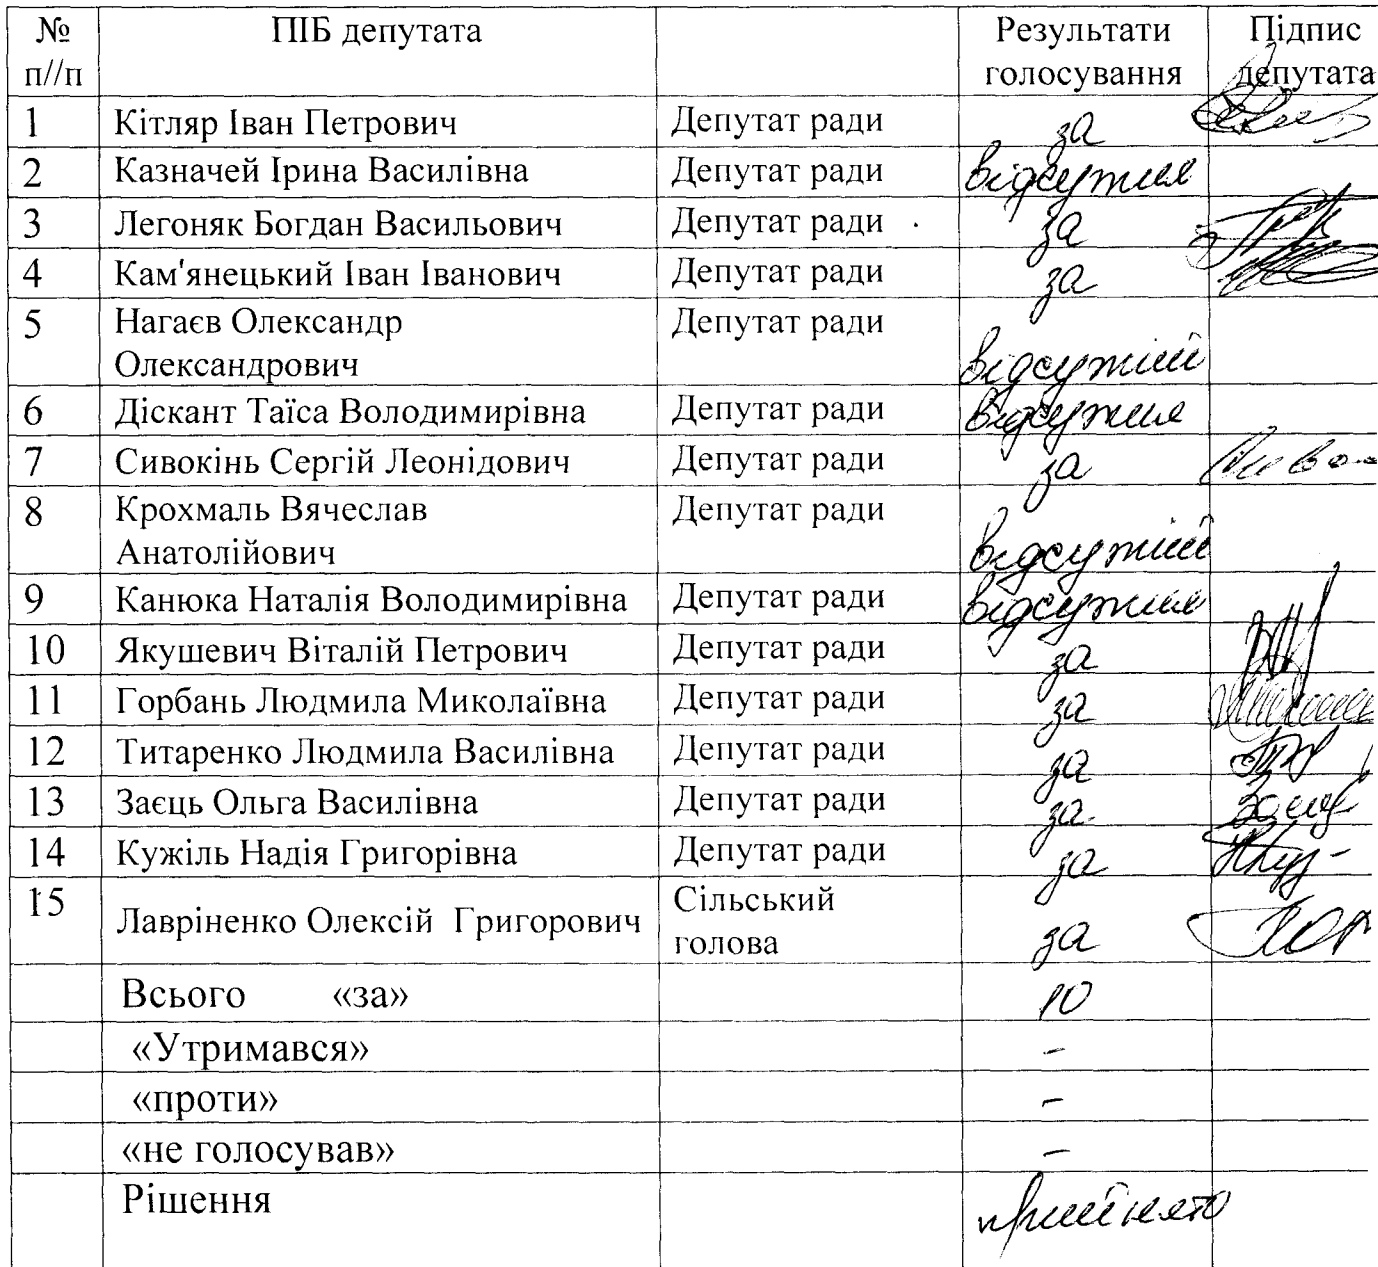 № ПІБ депутата Результати Підпис
п//п голосування депутата
1 Кітляр Іван Петрович Депутат ради за
2 Казначей Ірина Василівна Депутат ради відсутня
3 Легоняк Богдан Васильович Депутат ради за
4 Кам'янецький Іван Іванович Депутат ради за
5 Нагаєв Олександр Депутат ради
Олександрович відсутній
6 Діскант Таїса Володимирівна Депутат ради відсутня
7 Сивокінь Сергій Леонідович Депутат ради за
8 Крохмаль Вячеслав Депутат ради
Анатолійович відсутній
9 Канюка Наталія Володимирівна Депутат ради відсутня
10 Якушевич Віталій Петрович Депутат ради за
11 Горбань Людмила Миколаївна Депутат ради за
12 Титаренко Людмила Василівна Депутат ради за
13 Заєць Ольга Василівна Депутат ради за
14 Кужіль Надія Григорівна Депутат ради за
15 Лавріненко Олексій Григорович Сільський
голова за
Всього «за» 10
«Утримався» -
«проти» -
«не голосував» -
Рішення прийнято